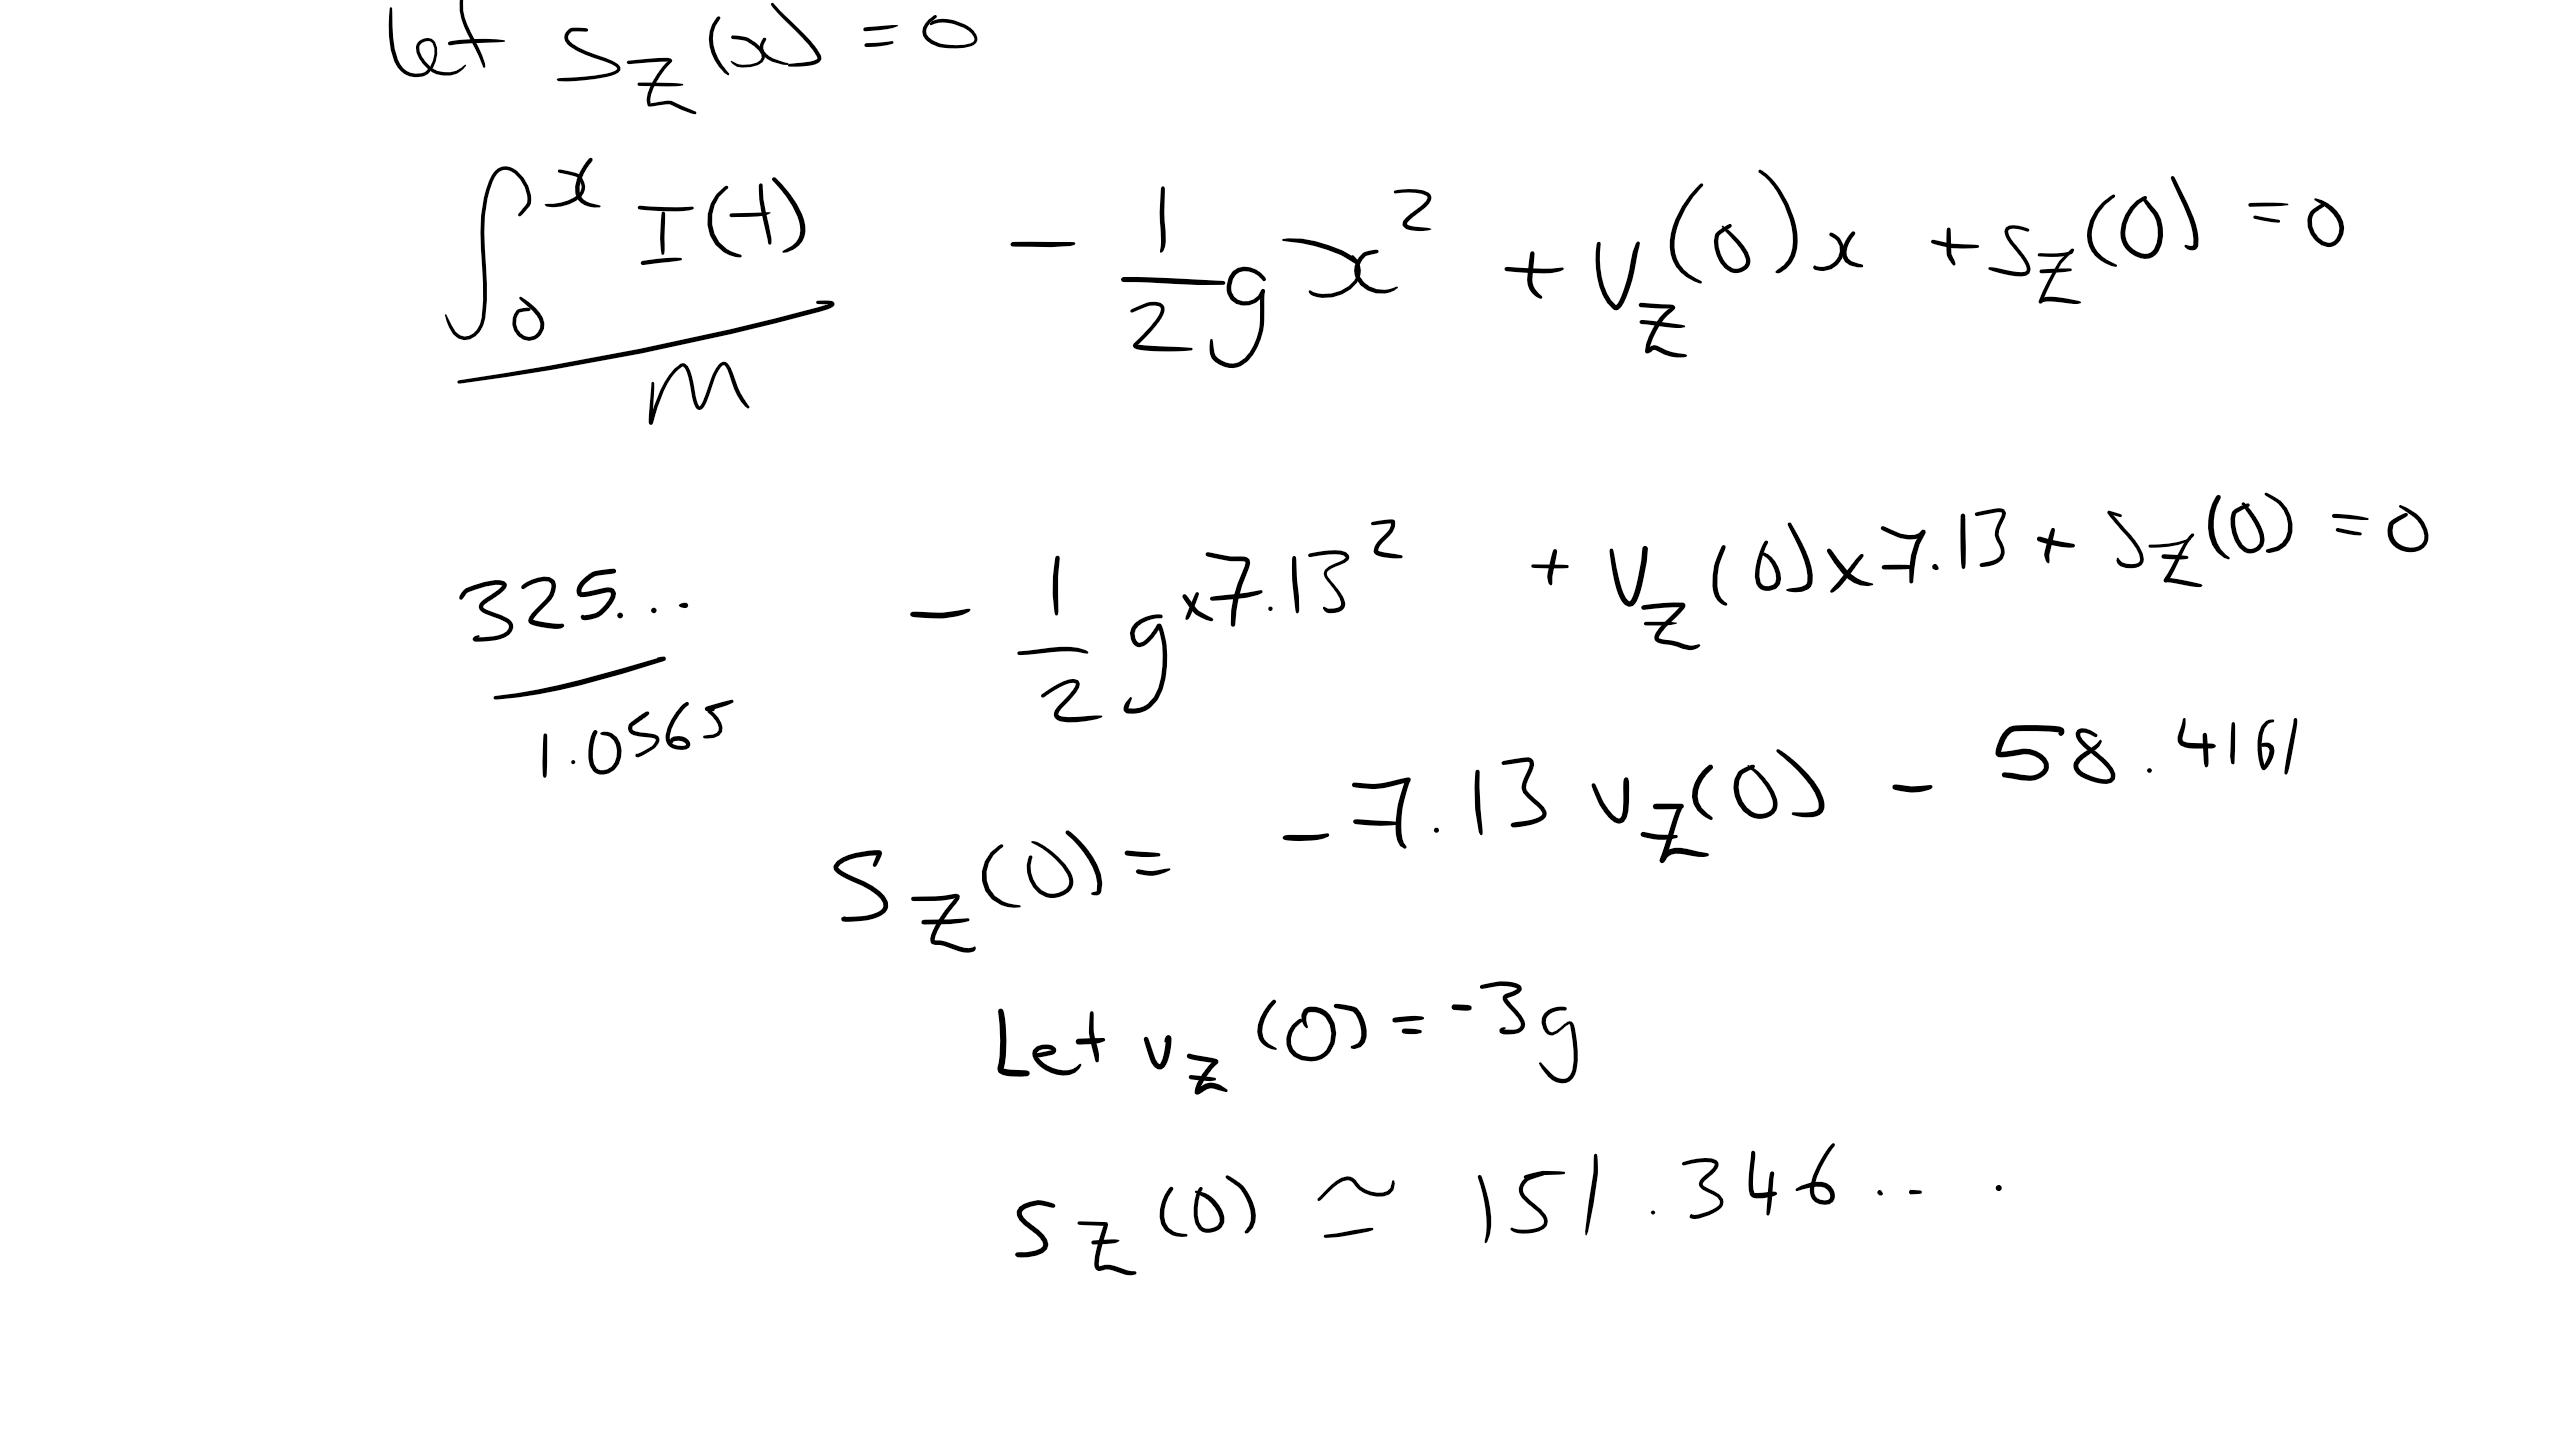 Let s_z(x) = 0
∫_0^x I(t) / m - 1/2 g x^2 + v_z(0)x + s_z(0) = 0
325... / 1.0565 - 1/2 g × 7.13^2 + v_z(0) × 7.13 + s_z(0) = 0
s_z(0) = -7.13 v_z(0) - 58.4161
Let v_z(0) = -3g
s_z(0) ≃ 151.346....